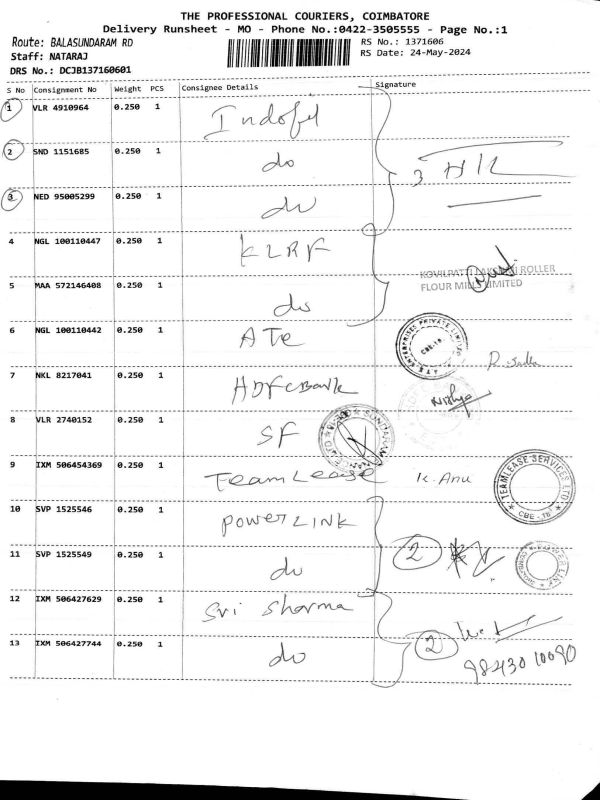 THE PROFESSIONAL COURIERS, COIMBATORE
Delivery Runsheet - MO - Phone No.:0422-3505555 - Page No.:1
Route: BALASUNDARAM RD
RS No.: 1371606
Staff: NATARAJ
RS Date: 24-May-2024
DRS No.: DCJB137160601
S No Consignment No Weight PCS Consignee Details Signature
1 VLR 4910964 0.250 1 Indofil
2 SND 1151685 0.250 1 do
3
3 NED 95005299 0.250 1 do
4 NGL 100110447 0.250 1 KLRF
KOVILPATTI LAKSHMI ROLLER
FLOUR MILLS LIMITED
5 MAA 572146408 0.250 1 do
6 NGL 100110442 0.250 1 ATe
A.T.E. ENTERPRISES PRIVATE LIMITED
CBE-18
7 NKL 8217041 0.250 1 HDFC Bank
Nithya
8 VLR 2740152 0.250 1 SF
SUNDARAM
9 IXM 506454369 0.250 1 Team Lease K. Anu
TEAMLEASE SERVICES LTD
CBE - 18
10 SVP 1525546 0.250 1 Power LINK
11 SVP 1525549 0.250 1 do
2
12 IXM 506427629 0.250 1 Sri Sharma
2
13 IXM 506427744 0.250 1 do
9843010090